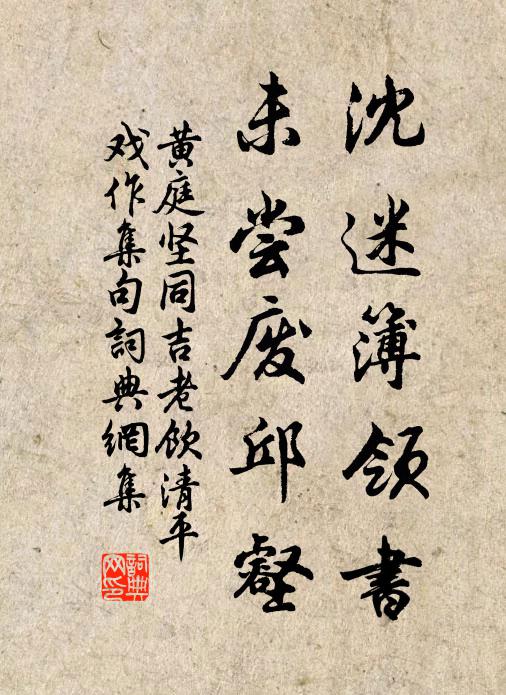 沈迷簿领书
未尝废邱壑
黄庭坚同吉老饮清平
戏作集句詞典網集
詞典网印